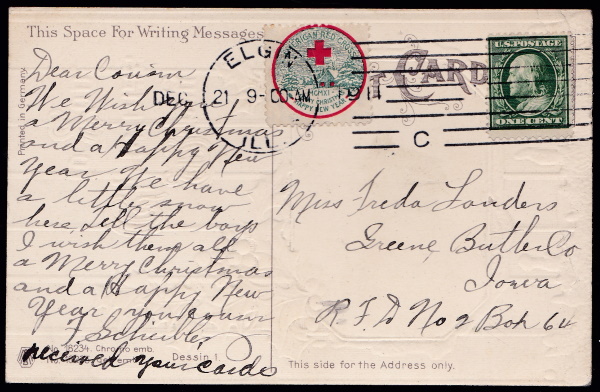 This Space For Writing Messages
Dear Cousin
We Wish you
a Merry Christmas
and a Happy New
Year We have
a little snow
here tell the boys
I wish them all
a Merry Christmas
and a Happy New
Year your cousin
F Scheibler
received your cards
Printed in Germany
No. 16234. Chromo emb.
Dessin 1.
AMERICAN RED CROSS
MCMXI
MERRY CHRISTMAS
HAPPY NEW YEAR
ELGIN
DEC 21 9-00 AM 1911
ILL.
C
CARD
U.S. POSTAGE
ONE CENT
Miss Freda Landers
Greene Butler Co
Iowa
R.F.D No 2 Box 64
This side for the Address only.